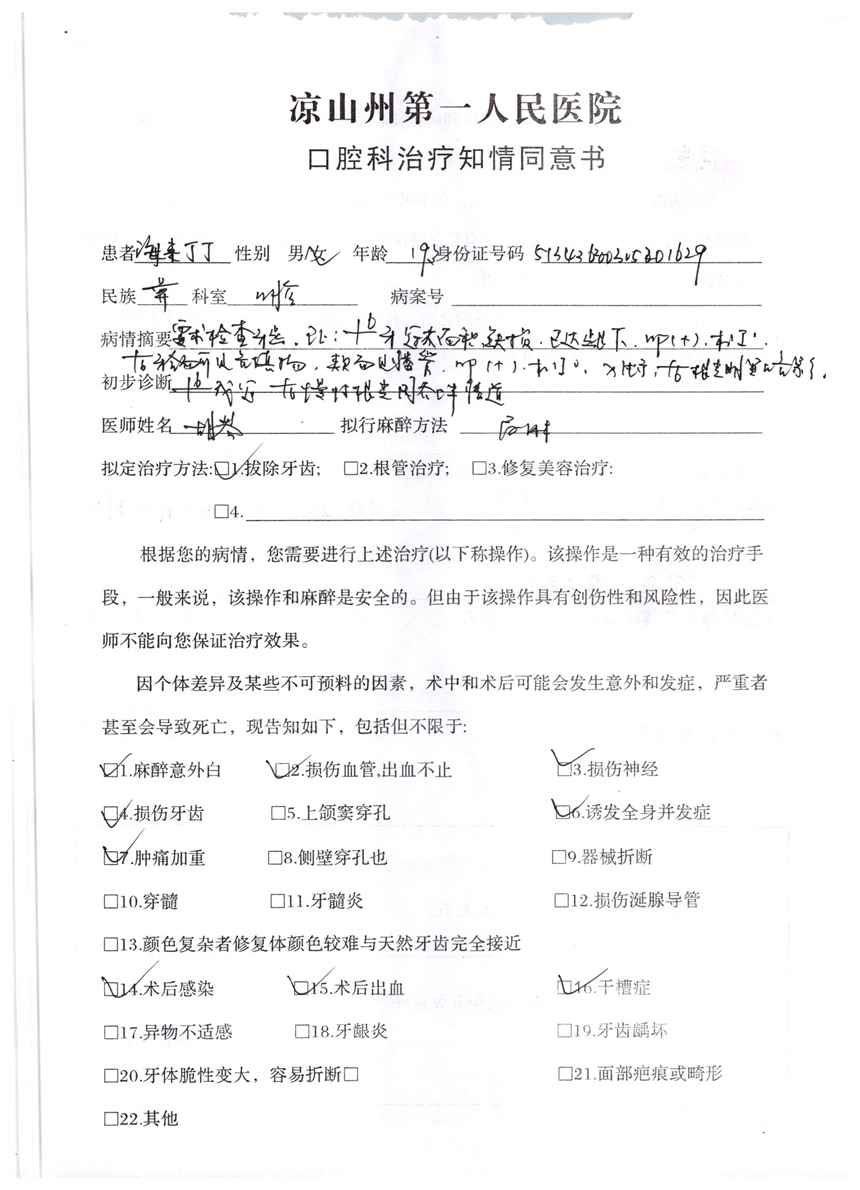 凉山州第一人民医院
口腔科治疗知情同意书
患者 海来丁丁 性别 男/女 年龄 19岁 身份证号码
民族 彝 科室 病案号
病情摘要 要求检查
初步诊断
医师姓名 拟行麻醉方法 局麻
拟定治疗方法:□1.拔除牙齿; □2.根管治疗; □3.修复美容治疗:
□4.
根据您的病情，您需要进行上述治疗(以下称操作)。该操作是一种有效的治疗手
段，一般来说，该操作和麻醉是安全的。但由于该操作具有创伤性和风险性，因此医
师不能向您保证治疗效果。
因个体差异及某些不可预料的因素，术中和术后可能会发生意外和发症，严重者
甚至会导致死亡，现告知如下，包括但不限于:
□1.麻醉意外白 □2.损伤血管,出血不止 □3.损伤神经
□4.损伤牙齿 □5.上颌窦穿孔 □6.诱发全身并发症
□7.肿痛加重 □8.侧壁穿孔也 □9.器械折断
□10.穿髓 □11.牙髓炎 □12.损伤涎腺导管
□13.颜色复杂者修复体颜色较难与天然牙齿完全接近
□14.术后感染 □15.术后出血 □16.干槽症
□17.异物不适感 □18.牙龈炎 □19.牙齿龋坏
□20.牙体脆性变大，容易折断□ □21.面部疤痕或畸形
□22.其他